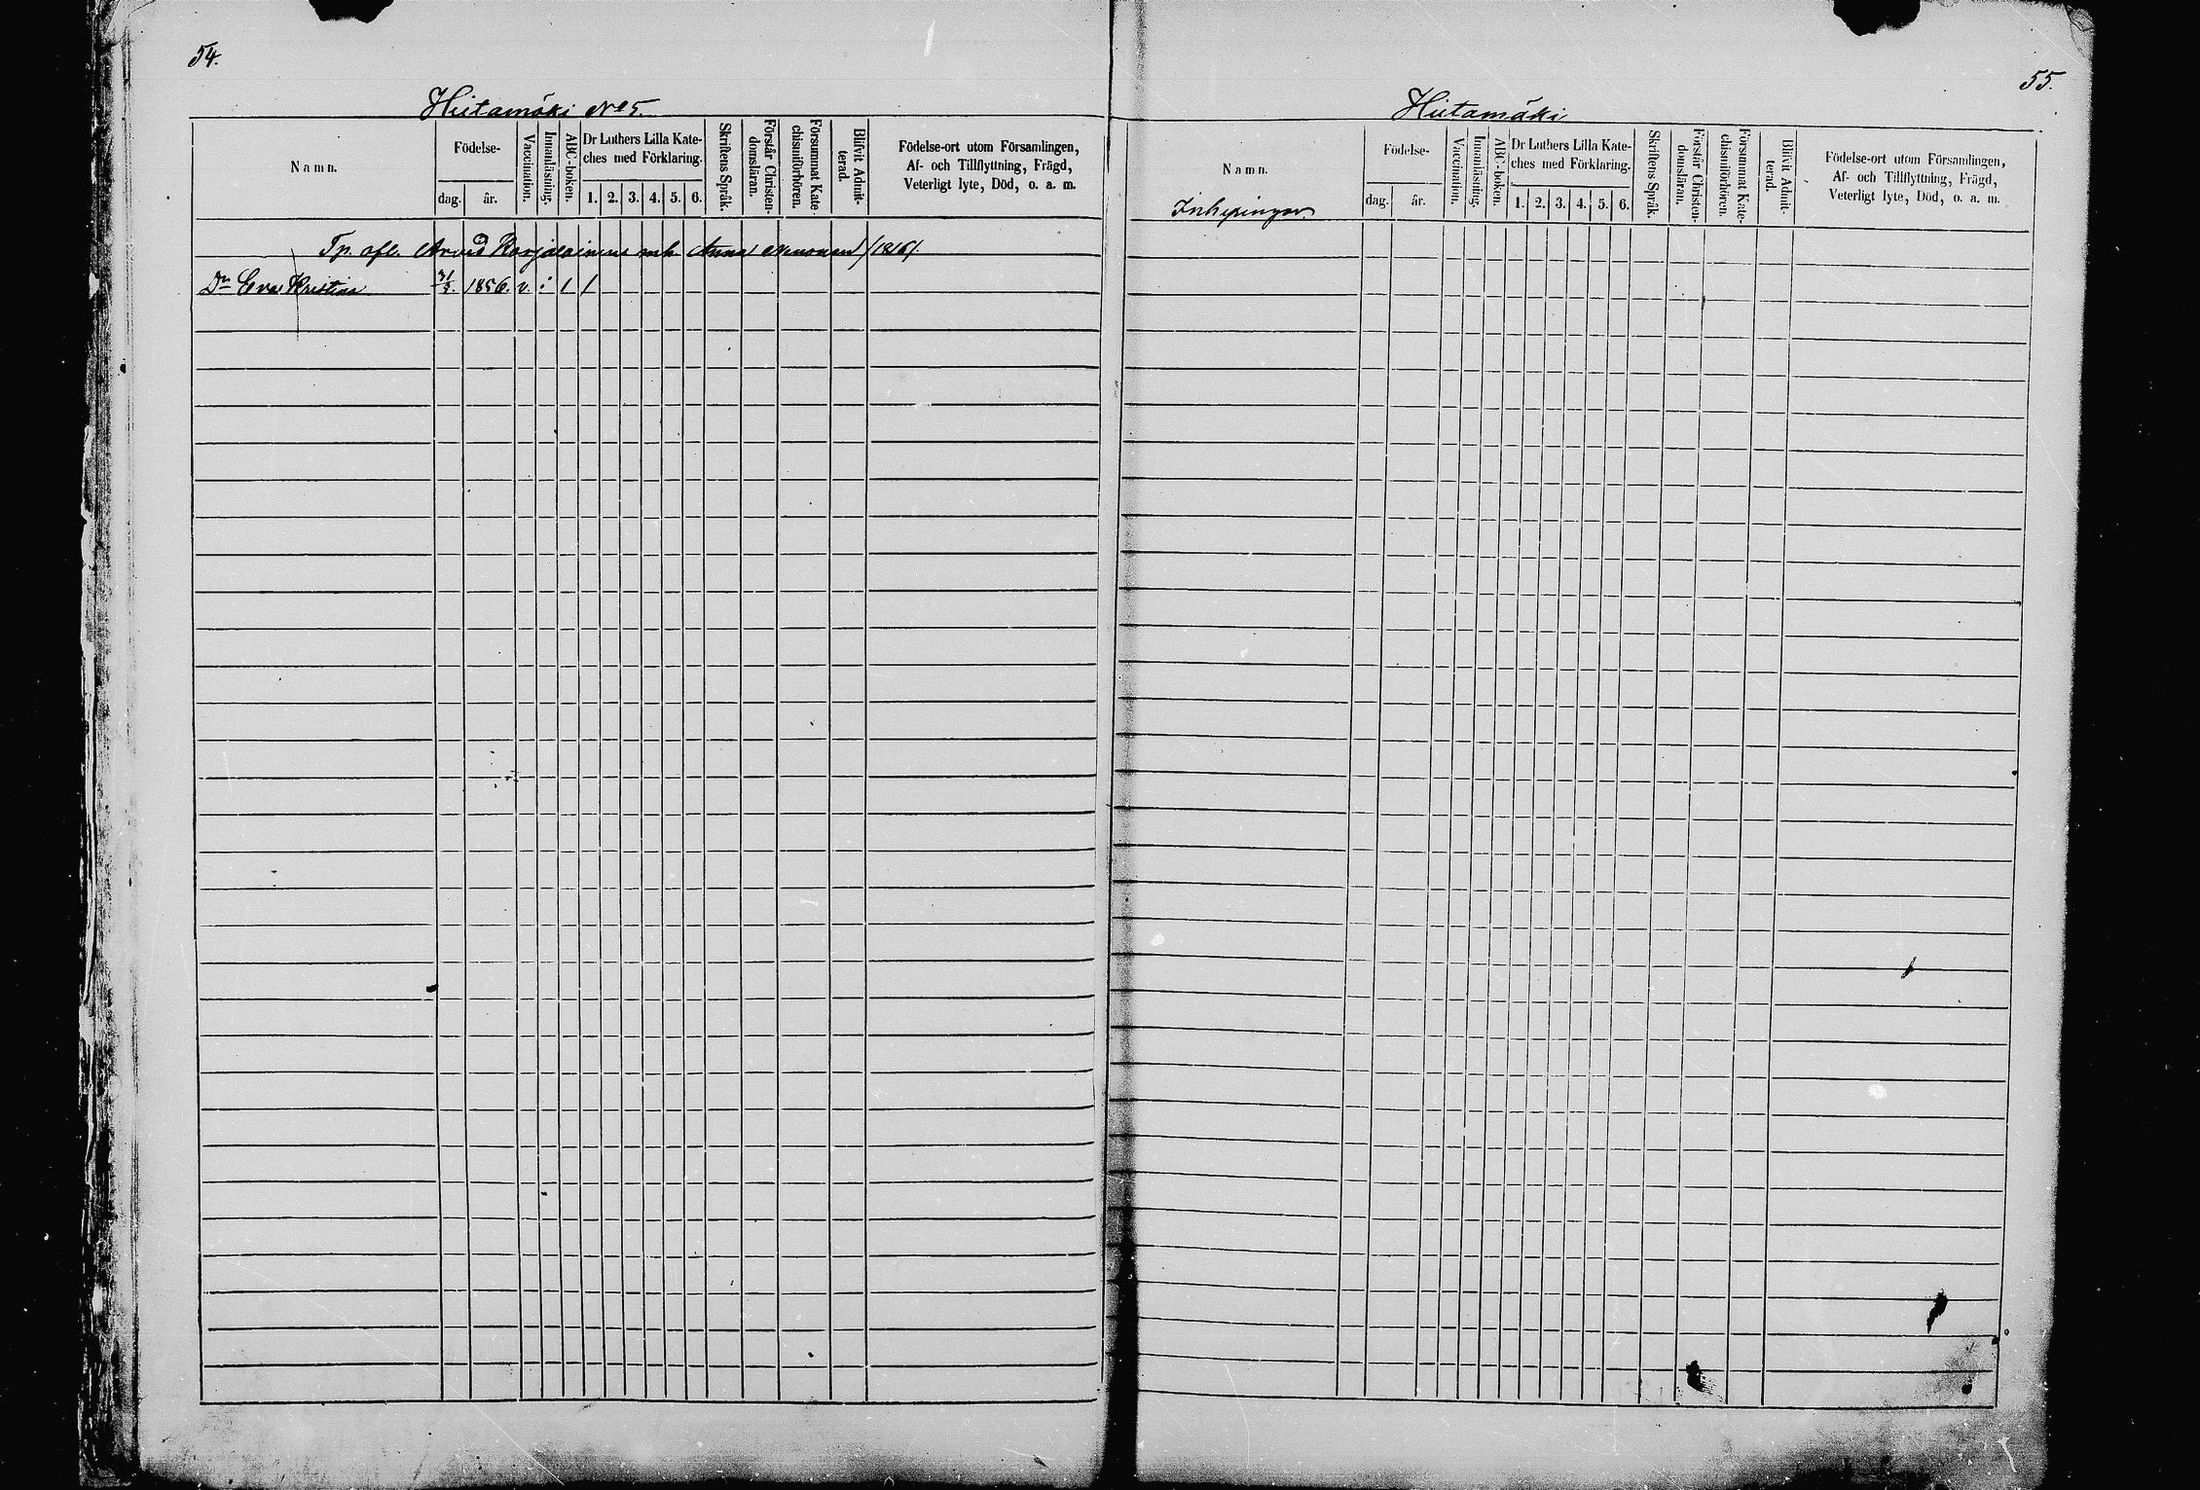 54.
Hiitamäki No 5.
Namn.
Födelse-
dag.
år.
Vaccination.
Innanläsning.
ABC-boken.
Dr Luthers Lilla Kate-
ches med Förklaring.
1. 2. 3. 4. 5. 6.
Skriftens Språk.
Förstår Christen-
domsläran.
Försummat Kate
chismiförhören.
Blifvit Admit-
terad.
Födelse-ort utom Församlingen,
Af- och Tillflyttning, Frägd,
Veterligt lyte, Död, o. a. m.
Tp. afl. Arvid Karjalainens enk. Anna /1816/
Dr Eva Kristina 31/3. 1856. v. : 1 1
55.
Hiitamäki
Namn.
Inhysingar.
Födelse-
dag.
år.
Vaccination.
Innanläsning.
ABC-boken.
Dr Luthers Lilla Kate-
ches med Förklaring.
1. 2. 3. 4. 5. 6.
Skriftens Språk.
Förstår Christen-
domsläran.
Försummat Kate-
chismiförhören.
Blifvit Admit-
terad.
Födelse-ort utom Församlingen,
Af- och Tillflyttning, Frägd,
Veterligt lyte, Död, o. a. m.